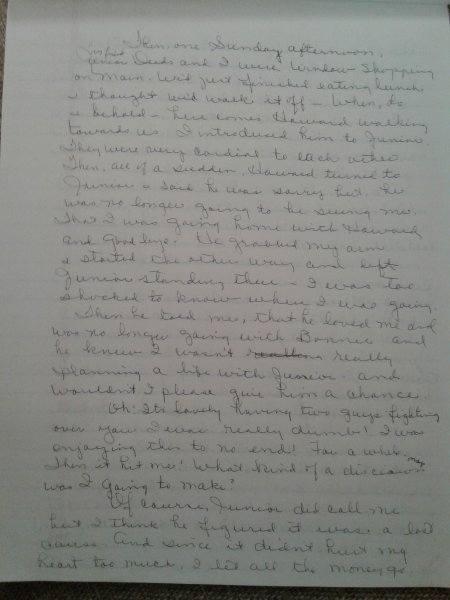 Then, one Sunday afternoon,
Junior Deeds and I were window shopping
on Main. We'd just finished eating lunch
& thought we'd walk it off - When, lo
& behold - here comes Howard walking
towards us. I introduced him to Junior.
They were very cordial to each other.
Then, all of a sudden, Howard turned to
Junior & said he was sorry but he
was no longer going to be seeing me.
That I was going home with Howard
and Good bye. He grabbed my arm
& started the other way and left
Junior standing there - I was too
shocked to know where I was going.
Then he told me, that he loved me and
was no longer going with Bonnie and
he knew I wasn't really
planning a life with Junior. and
wouldn't I please give him a chance.
Oh! Its lovely having two guys fighting
over you. I was really dumb! I was
enjoying this to no end! For a while.
Then it hit me! What kind of a decision
was I going to make?
Of course, Junior did call me
but I think he figured it was a lost
cause. And since it didn't hurt my
heart too much, I let all the money go.